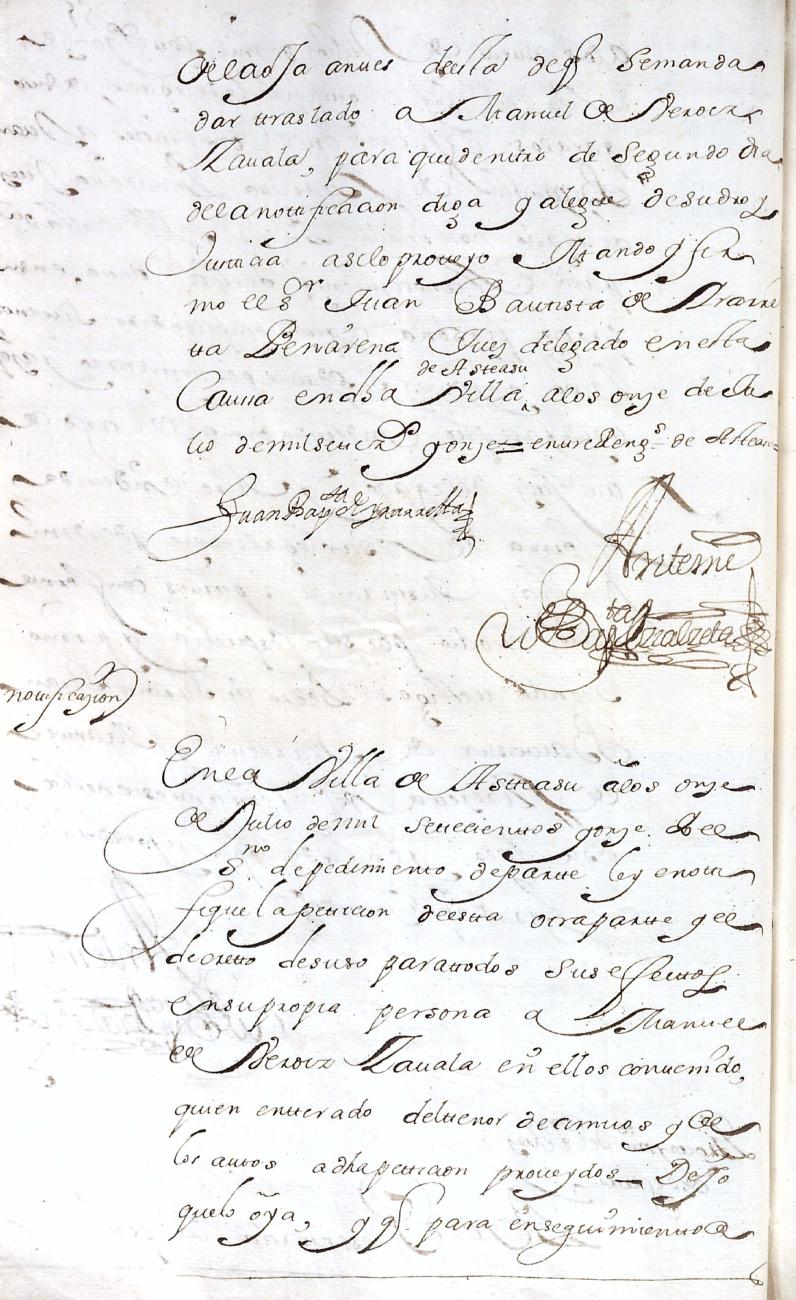 de la oja antes desta de q̃ Semanda
dar ttraslado a Manuel de Veroiz
Zauala, para qui dentro de Segundo dia
dela nottificacion diga y alegue desudrõ y
Justicia asilo proueyo Mando y fir
mo el Sʳ Juan Bautista de
tta Benarena Juez delegado enesta
de Asteasu
Causa endha Villa alos onze de Ju
lio demil setez.ᵒˢ y onze = entre Reng.ˢ de Asteasu =
Juan Bapᵗᵃ de
Antemi
Bapᵗᵃ de
nottificazion
Enla Villa de Astteasu a los onze
de Julio demil settecienttos y onze. Yo el
Sⁿᵒ de pedimiento departte ley enotti
fique la petticion deesta otra partte y el
decretto desuso para ttodos sus efecttos
ensu propia persona a Manuel
de Veroiz Zauala en ellos conttenido,
quien entterado deltenor decimos y de
los autos adha petticion proueydos Dejo
quelo oya, y q̃ para enseguimiento de